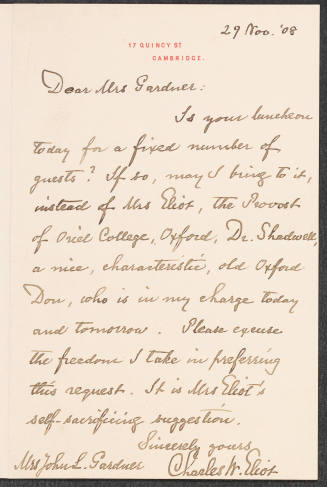 29 Nov. '08
17 QUINCY ST
CAMBRIDGE.
Dear Mrs Gardner:
Is your luncheon
today for a fixed number of
guests? If so, may I bring to it,
instead of Mrs Eliot, the Provost
of Oriel College, Oxford, Dr. Shadwell,
a nice, characteristic, old Oxford
Don, who is in my charge today
and tomorrow. Please excuse
the freedom I take in preferring
this request. It is Mrs Eliot's
self-sacrificing suggestion.
Sincerely yours
Charles W. Eliot
Mrs John L. Gardner